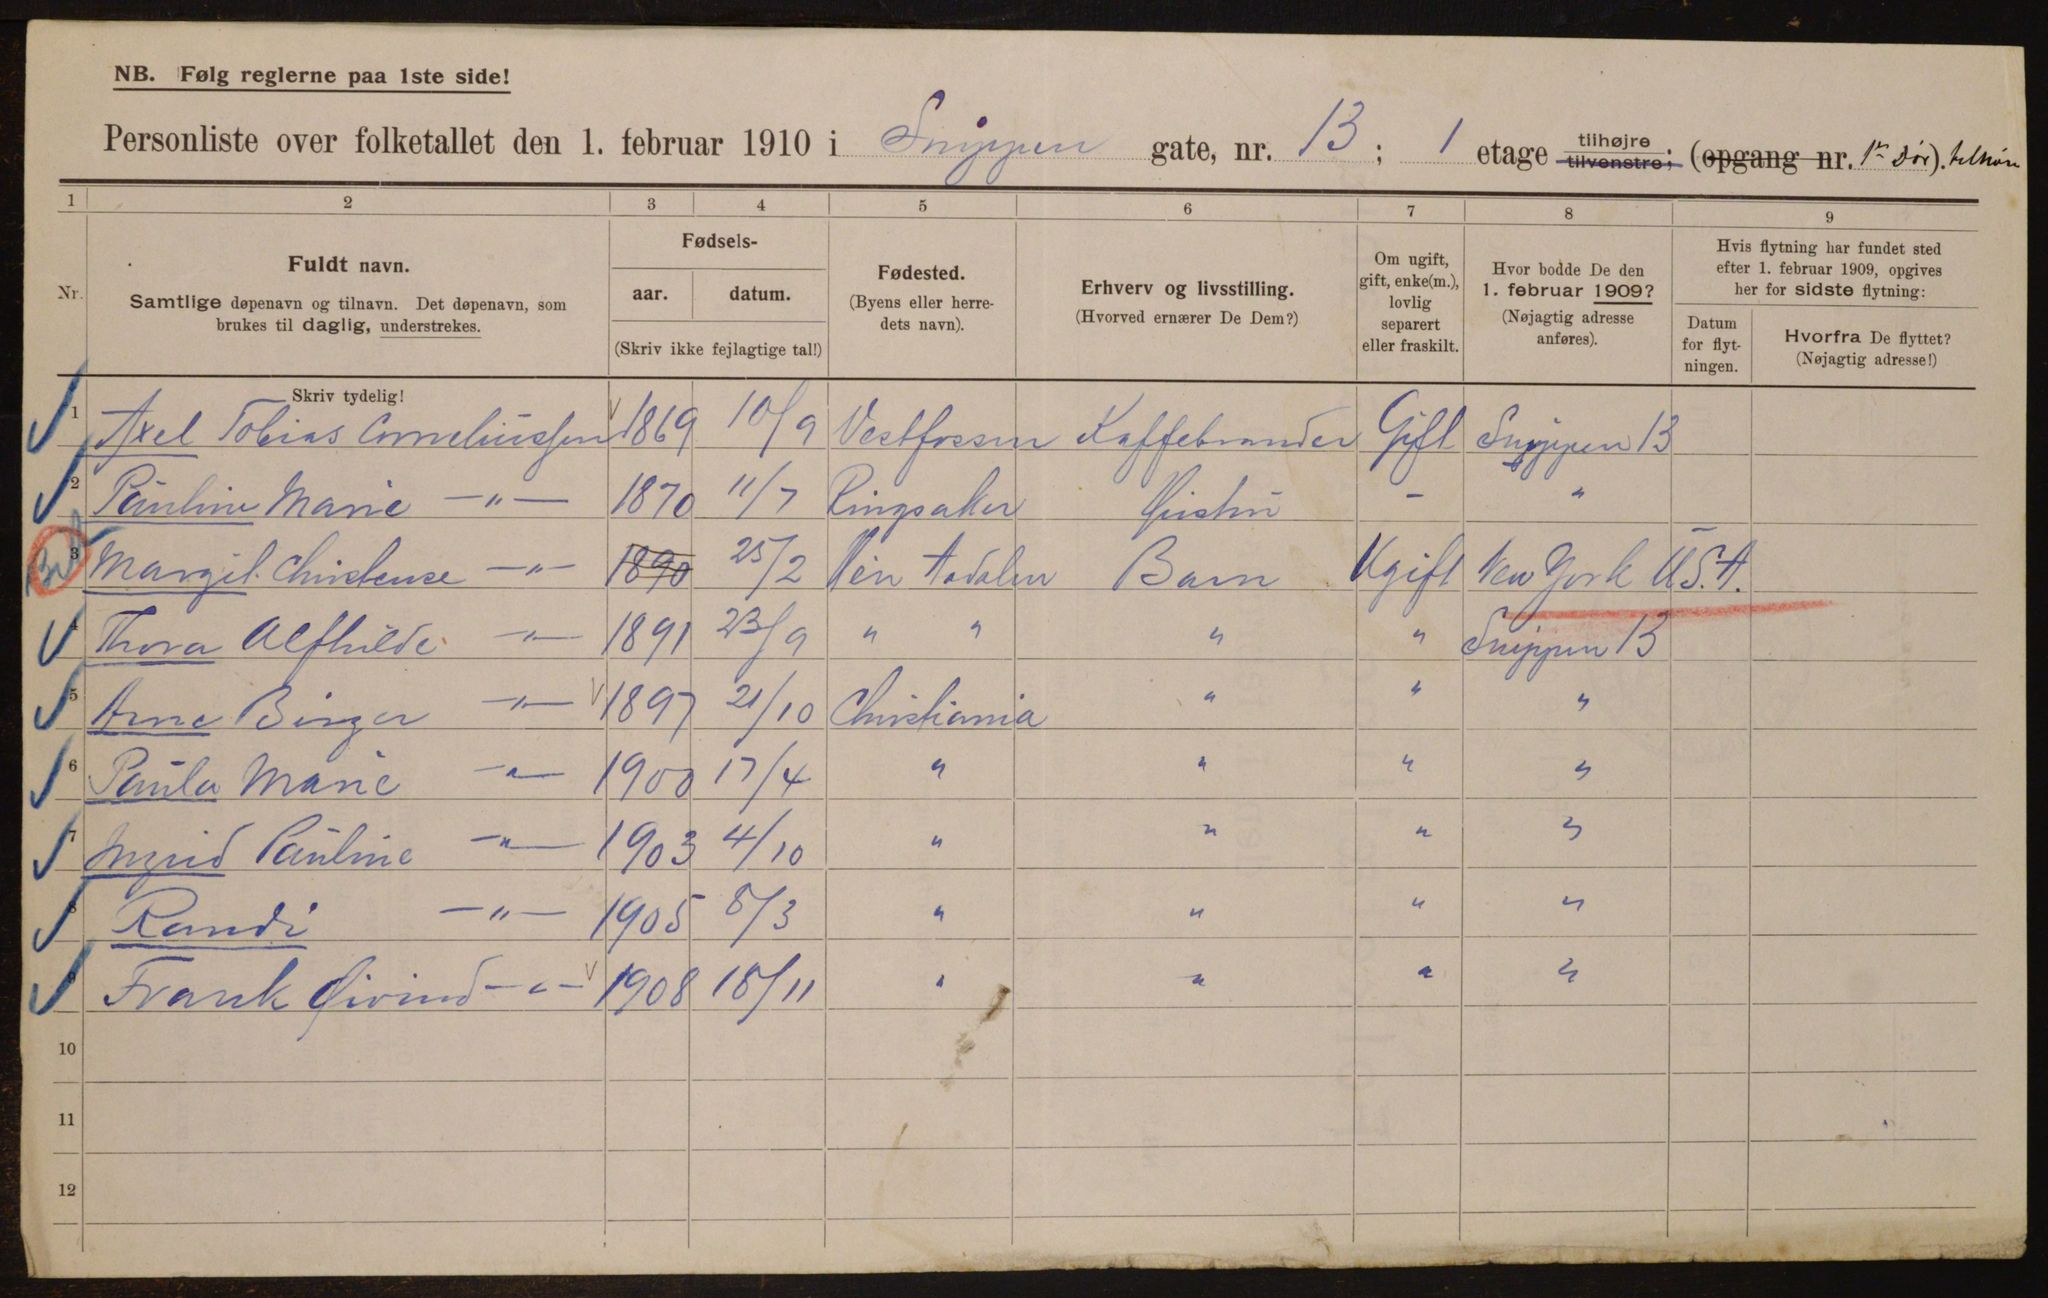 NB. Følg reglerne paa 1ste side!
Personliste over folketallet den 1. februar 1910 i Snippen gate, nr. 13; 1 etage tilhøjre tilvenstre; (opgang nr. 1ste Dør). tilhøire
1 2 3 4 5 6 7 8 9
Nr.
Fuldt navn.
Samtlige døpenavn og tilnavn. Det døpenavn, som
brukes til daglig, understrekes.
Fødsels-
aar. datum.
(Skriv ikke fejlagtige tal!)
Fødested.
(Byens eller herre-
dets navn).
Erhverv og livsstilling.
(Hvorved ernærer De Dem?)
Om ugift,
gift, enke(m.),
lovlig
separert
eller fraskilt.
Hvor bodde De den
1. februar 1909?
(Nøjagtig adresse
anføres).
Hvis flytning har fundet sted
efter 1. februar 1909, opgives
her for sidste flytning:
Datum
for flyt-
ningen.
Hvorfra De flyttet?
(Nøjagtig adresse!)
Skriv tydelig!
1 Axel Tobias Corneliussen 1869 10/9 Vestfossen Kaffebrander Gift Snippen 13
2 Pauline Marie —"— 1870 11/7 Ringsaker Hustru - "
3 Margit Christense —"— 1890 25/2 Aadalen Barn Ugift New York U.S.A.
4 Thora Alfhilde —"— 1891 23/9 " " " " Snippen 13
5 Arne Birger —"— 1897 21/10 Christiania " " "
6 Paula Marie —"— 1900 17/4 " " " "
7 Ingrid Pauline —"— 1903 4/10 " " " "
8 Randi —"— 1905 8/3 " " " "
9 Frank Øivind —"— 1908 18/11 " " " "
10
11
12